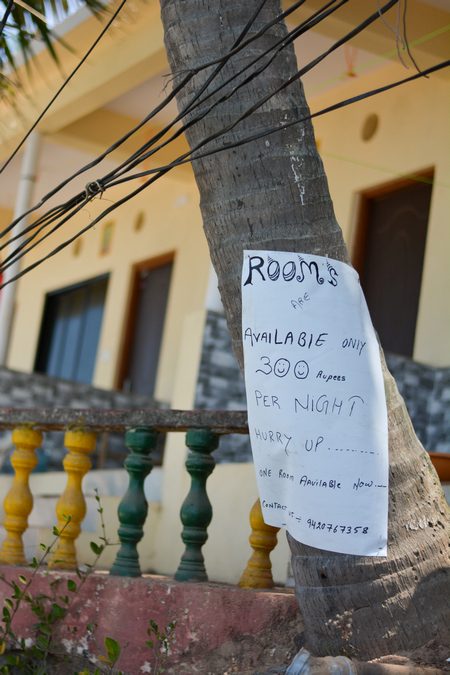 ROOM'S
ARE
AVAILABLE ONLY
300 Rupees
PER NIGHT
HURRY UP .........
ONE ROOM AAVAILABLE NOW....
CONTACT:- 9420767358